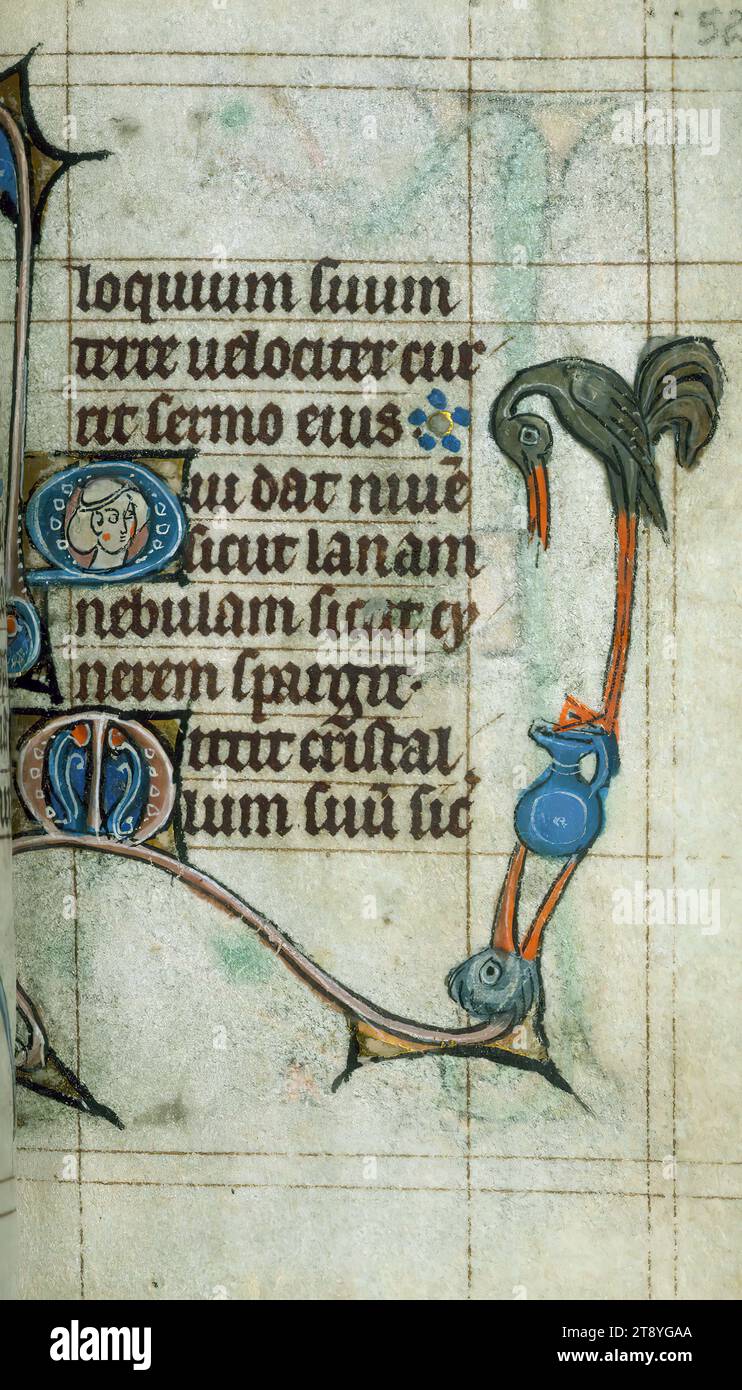 52
loquium suum
terre uelociter cur
rit sermo eius
Qui dat niuē
sicut lanam
nebulam sicut cy
nerem spargit.
Mittit cristal
lum suū sic
alamy
alamy
Image ID: 2T8YGAA
www.alamy.com